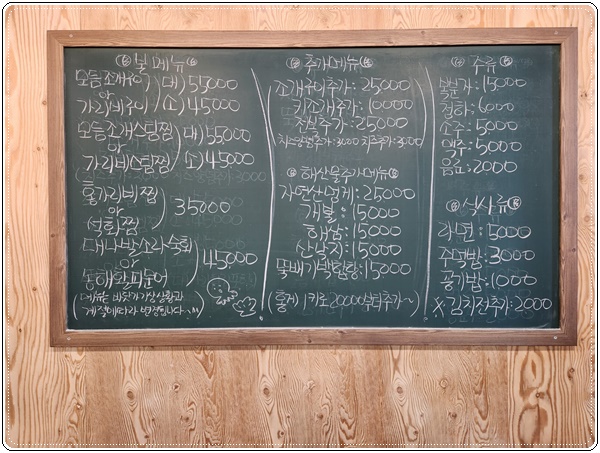 불메뉴
모듬조개구이
or
가리비구이
대) 55000
소) 45000
모듬조개스팀찜
or
가리비스팀찜
대) 55,000
소) 45000
홍가리비찜
or
석화찜
35000
대나박소라숙회
or
동해활피문어
45000
계절에따라 변경됩니다
추가메뉴
조개구이추가: 25000
키조개추가: 10000
전복추가: 25000
치즈추가: 3000
해산물추가메뉴
자연산멍게: 25000
개불: 15000
해삼: 15000
산낙지: 15000
뚝배기: 15000
(홍게) 1키로 20000부터추가~)
주류
복분자: 15000
청하: 6000
소주: 5000
맥주: 5000
음료: 2000
식사류
라면: 5000
주먹밥: 3000
공기밥: 1000
※김치전추가: 2000